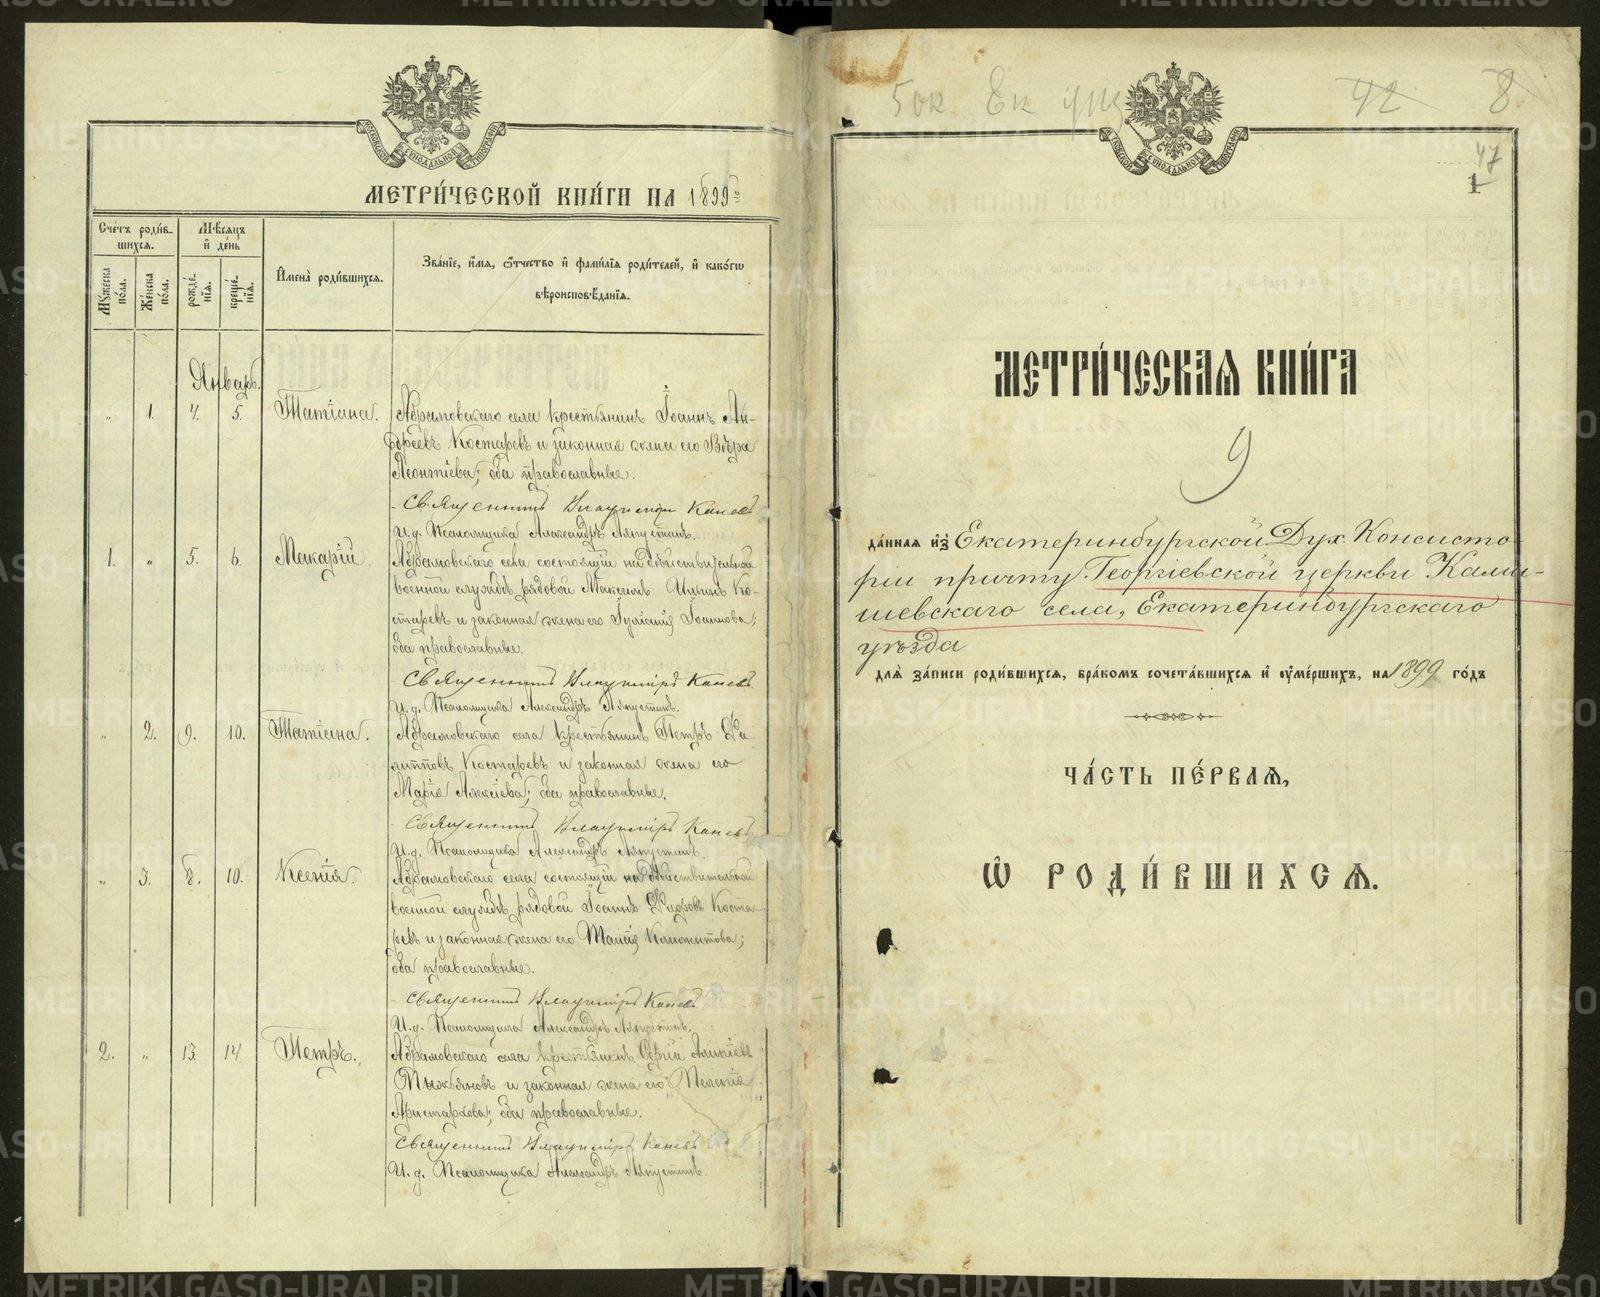 МЕТРИ́ЧЕСКОЙ КНИ́ГИ НА 1899 го
Счетъ роди́в-
шихся.
Мѣсяцъ
и де́нь
Му́жеска
по́ла.
Же́нска
по́ла.
рожде́-
нія.
креще́-
нія.
Имена̀ роди́вшихся.
Зва́ніе, и́мя, ѻ́тчество и фами́лія роди́телей, и како́гѡ
вѣроисповѣ́данія.
Январь.
„ 1. 4. 5. Татіана. Абрамовскаго села крестьянинъ Іоаннъ
Костаревъ и законная жена его Вѣра
Леонтіева; оба православные.
Священникъ Владиміръ Каневъ
И.д. Псаломщика Александръ Ляпустинъ.
1. „ 5. 6. Макарій. Абрамовскаго села состоящій на дѣйствительной
военной службѣ рядовой Максимъ Ко-
старевъ и законная жена его Іуліанія Іоаннова;
оба православные.
Священникъ Владиміръ Каневъ
И.д. Псаломщика Александръ Ляпустинъ.
„ 2. 9. 10. Татіана. Абрамовскаго села крестьянинъ Петръ Фи-
липповъ Костаревъ и законная жена его
Марія Алексіева; оба православные.
Священникъ Владиміръ Каневъ
И.д. Псаломщика Александръ Ляпустинъ.
„ 3. 8. 10. Ксенія. Абрамовскаго села состоящій на дѣйствительной
военной службѣ рядовой Іоаннъ Коста-
ревъ и законная жена его Таисія Климентова;
оба православные.
Священникъ Владиміръ Каневъ
И.д. Псаломщика Александръ Ляпустинъ.
2. „ 13. 14. Петръ. Абрамовскаго села крестьянинъ Сергій Алипіевъ
и законная жена его Пелагія
Аристархова; оба православные.
Священникъ Владиміръ Каневъ
И.д. Псаломщика Александръ Ляпустинъ.
5 ок Ек уѣз
42 8
47
1
МЕТРИ́ЧЕСКАЯ КНИ́ГА
9
да́нная из̾ Екатеринбургской Дух. Консисто-
ріи причту Георгіевской церкви Камы-
шевскаго села, Екатеринбургскаго
уѣзда
для за́писи роди́вшихся, бра́комъ сочета́вшихся и оуме́ршихъ, на 1899 го́дъ
ЧА́СТЬ ПЕ́РВАЯ,
Ѡ РОДИ́ВШИХСЯ.
METRIKI.GASO-URAL.RU